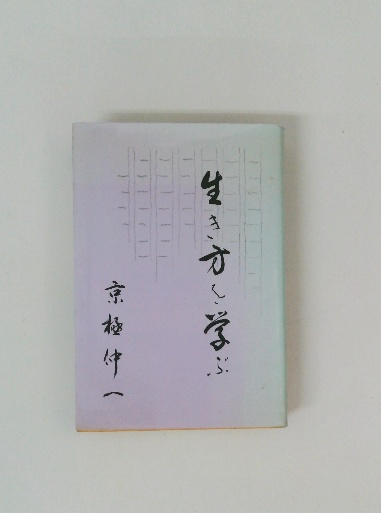 生き方を学ぶ
京極仲へ